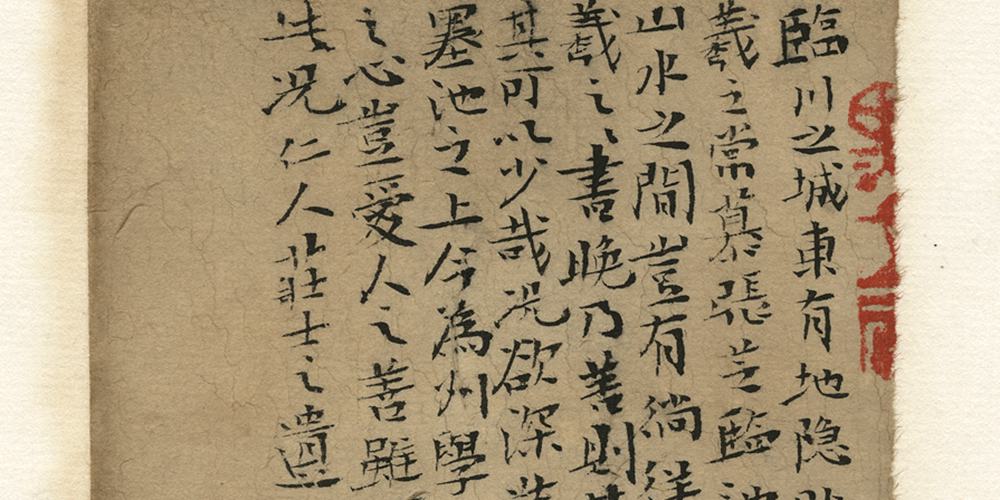 臨川之城東有地隐
羲之常慕張芝臨池
山水之間豈有徜徉
羲之之書晚乃善則其
其可以少哉况欲深造
墨池之上今為州學
之心豈愛人之善雖
况仁人莊士之遺